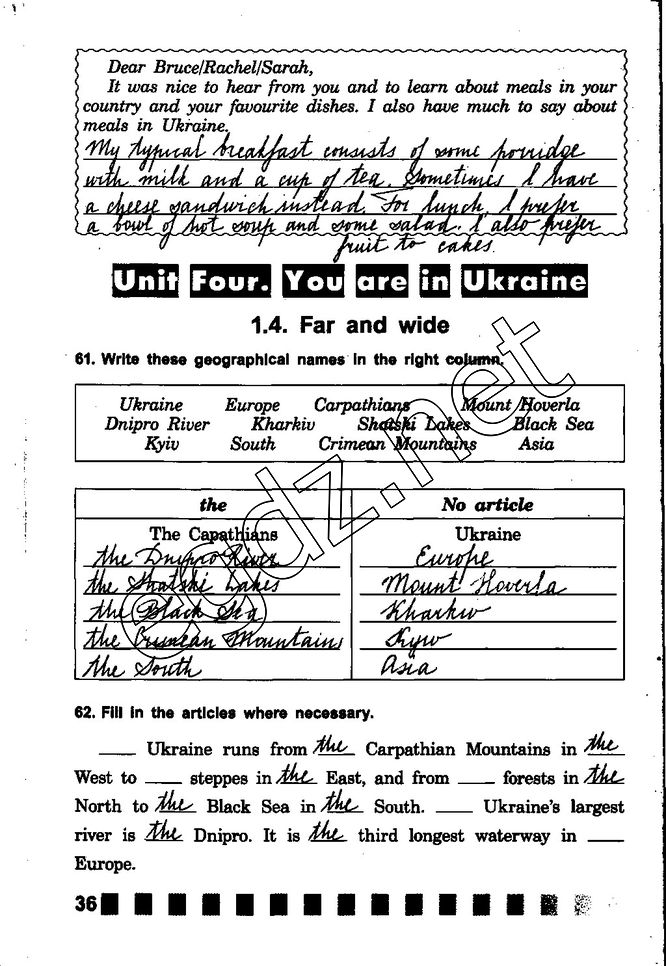 Dear Bruce/Rachel/Sarah,
It was nice to hear from you and to learn about meals in your
country and your favourite dishes. I also have much to say about
meals in Ukraine.
My typical breakfast consists of some porridge
with milk and a cup of tea. Sometimes I have
a cheese sandwich instead. For lunch, I prefer
a bowl of hot soup and some salad. I also prefer
fruit to cakes.
Unit Four. You are in Ukraine
1.4. Far and wide
61. Write these geographical names in the right column.
Ukraine Europe Carpathians Mount Hoverla
Dnipro River Kharkiv Shatski Lakes Black Sea
Kyiv South Crimean Mountains Asia
the No article
The Capathians Ukraine
the Dnipro River Europe
the Shatski Lakes Mount Hoverla
the Black Sea Kharkiv
the Crimean Mountains Kyiv
the South Asia
62. Fill in the articles where necessary.
___ Ukraine runs from the Carpathian Mountains in the
West to ___ steppes in the East, and from ___ forests in the
North to the Black Sea in the South. ___ Ukraine's largest
river is the Dnipro. It is the third longest waterway in ___
Europe.
36